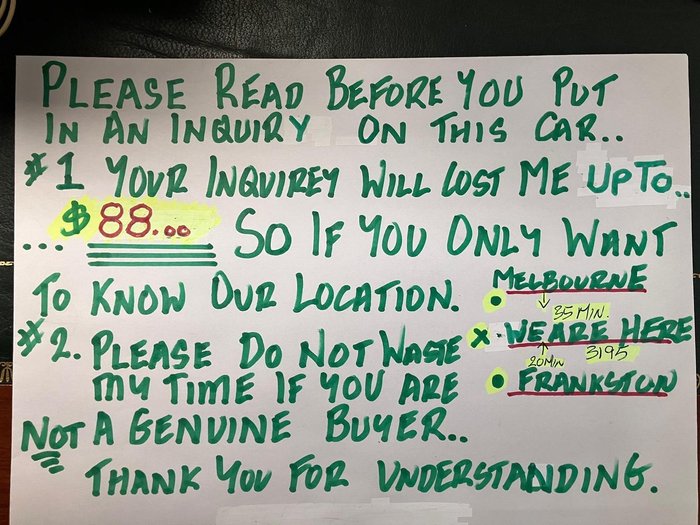 PLEASE READ BEFORE YOU PUT
IN AN INQUIRY ON THIS CAR..
#1 YOUR INQUIREY WILL COST ME UP TO..
... $88.00 SO IF YOU ONLY WANT
TO KNOW OUR LOCATION.
MELBOURNE
↓ 35 MIN.
x. WE ARE HERE
↑ 20 MIN 3195
FRANKSTON
#2. PLEASE DO NOT WASTE
MY TIME IF YOU ARE
NOT A GENUINE BUYER..
THANK YOU FOR UNDERSTANDING.